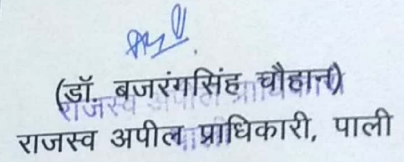 (डॉ. बजरंगसिंह चौहान)
राजस्व अपील प्राधिकारी
राजस्व अपील प्राधिकारी, पाली